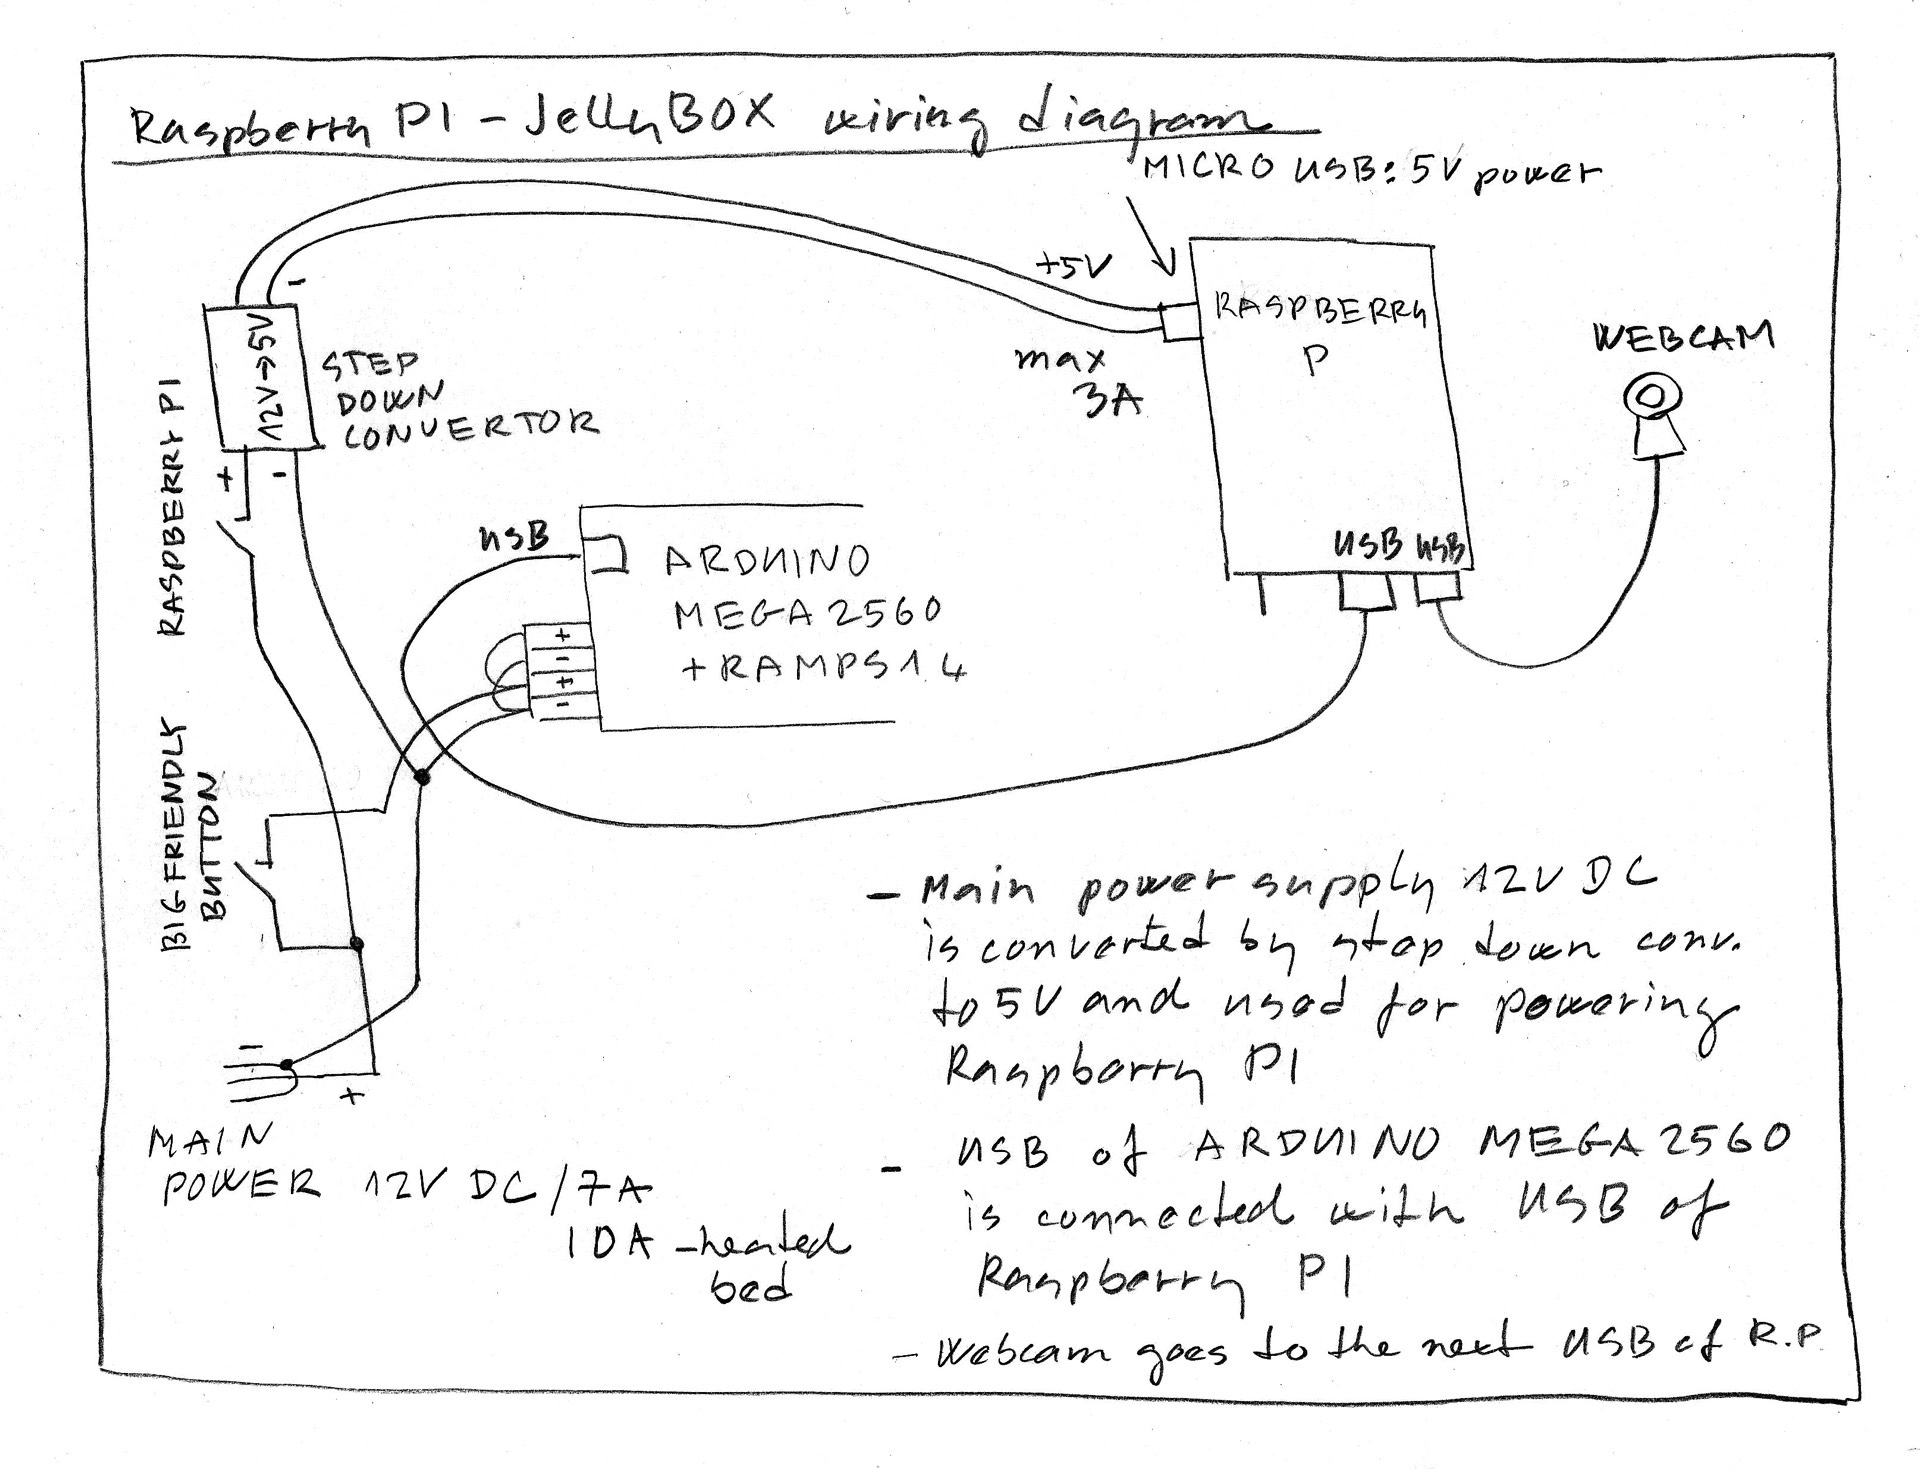 Raspberry PI - JellyBOX wiring diagram
MICRO USB: 5V power
+5V
max
3A
RASPBERRY
P
USB USB
WEBCAM
-
12V→5V
STEP
DOWN
CONVERTOR
+ -
RASPBERRY PI
USB
ARDUINO
MEGA 2560
+ RAMPS 1.4
+
-
+
-
BIG FRIENDLY
BUTTON
-
+
MAIN
POWER 12V DC / 7A
10A - heated
bed
- Main power supply 12V DC
is converted by step down conv.
to 5V and used for powering
Raspberry PI
- USB of ARDUINO MEGA 2560
is connected with USB of
Raspberry PI
- Webcam goes to the next USB of R.P